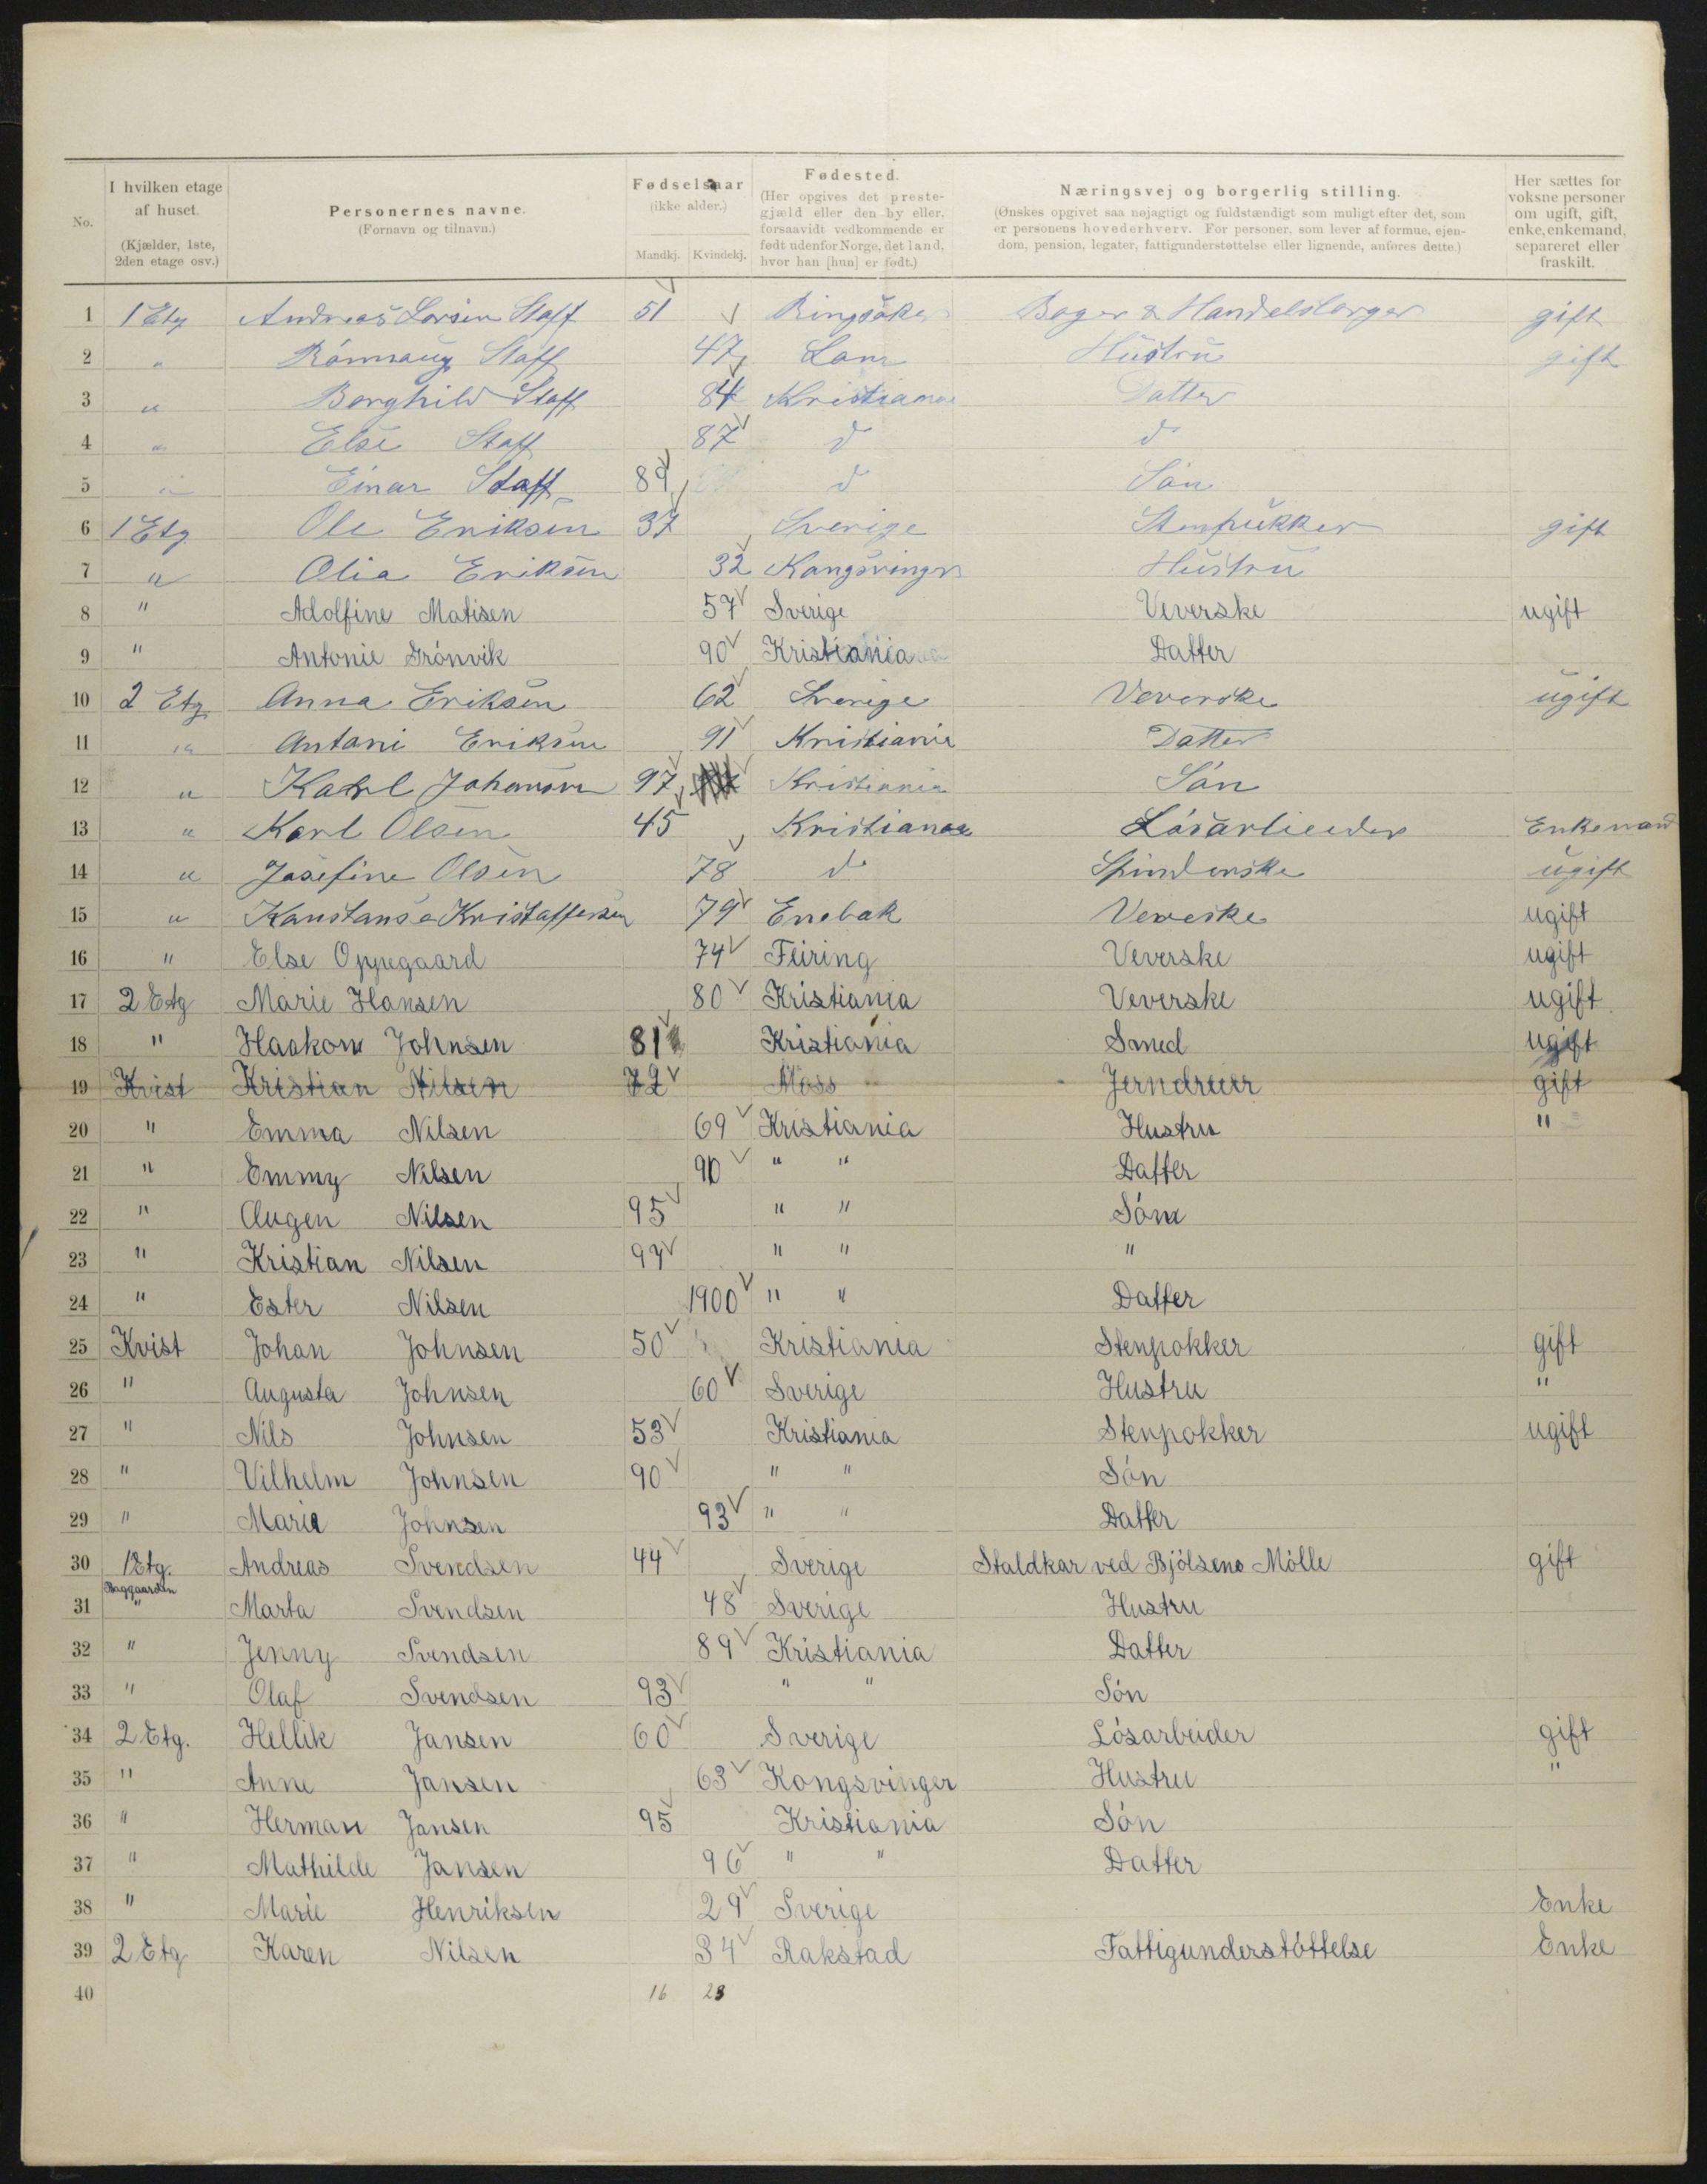 No. | I hvilken etage af huset. (Kjælder, 1ste, 2den etage osv.) | Personernes navne. (Fornavn og tilnavn.) | Fødselsaar (ikke alder.) Mandkj. Kvindekj. | Fødested. (Her opgives det prestegjæld eller den by eller, forsaavidt vedkommende er født udenfor Norge, det land, hvor han [hun] er født.) | Næringsvej og borgerlig stilling. (Ønskes opgivet saa nøjagtigt og fuldstændigt som muligt efter det, som er personens hovederhverv. For personer, som lever af formue, ejendom, pension, legater, fattigunderstøttelse eller lignende, anføres dette.) | Her sættes for voksne personer om ugift, gift, enke, enkemand, separeret eller fraskilt.
1 1 Etg Andreas Larsen Staff 51 Ringsaker Bager & Handelsborger gift
2 " Rönnaug Staff 47 Lom Hustru gift
3 " Borghild Staff 84 Kristiania Datter
4 " Else Staff 87 d d
5 " Einar Staff 89 d Sön
6 1 Etg Ole Eriksen 37 Sverige Stenpukker gift
7 " Olia Eriksen 32 Kongsvinger Hustru
8 " Adolfine Matisen 57 Sverige Veverske ugift
9 " Antonie Grönvik 90 Kristiania Datter
10 2 Etg Anna Eriksen 62 Sverige Veverske ugift
11 " Antoni Eriksen 91 Kristiania Datter
12 " Karl Johansen 97 Kristiania Sön
13 " Karl Olsen 45 Kristiania Lösarbeider Enkemand
14 " Josefine Olsen 78 d Spinderske ugift
15 " Konstanse Kristoffersen 79 Enebak Veveske ugift
16 " Else Oppegaard 74 Feiring Veverske ugift
17 2 Etg Marie Hansen 80 Kristiania Veverske ugift
18 " Haakon Johnsen 81 Kristiania Smed ugift
19 Kvist Kristian Nilsen 72 Moss Jerndreier gift
20 " Emma Nilsen 69 Kristiania Hustru "
21 " Emmy Nilsen 90 " " Datter
22 " Augen Nilsen 95 " " Sön
23 " Kristian Nilsen 97 " " "
24 " Ester Nilsen 1900 " " Datter
25 Kvist Johan Johnsen 50 Kristiania Stenpokker gift
26 " Augusta Johnsen 60 Sverige Hustru "
27 " Nils Johnsen 53 Kristiania Stenpokker ugift
28 " Vilhelm Johnsen 90 " " Sön
29 " Marie Johnsen 93 " " Datter
30 1 Etg. Andreas Svendsen 44 Sverige Staldkar ved Bjölsens Mölle gift
Baggaarden
31 " Marta Svendsen 48 Sverige Hustru
32 " Jenny Svendsen 89 Kristiania Datter
33 " Olaf Svendsen 93 " " Sön
34 2 Etg. Hellik Jansen 60 Sverige Lösarbeider gift
35 " Anne Jansen 63 Kongsvinger Hustru "
36 " Herman Jansen 95 Kristiania Sön
37 " Mathilde Jansen 96 " " Datter
38 " Marie Henriksen 29 Sverige Enke
39 2 Etg Karen Nilsen 34 Rakstad Fattigunderstöttelse Enke
40 16 23